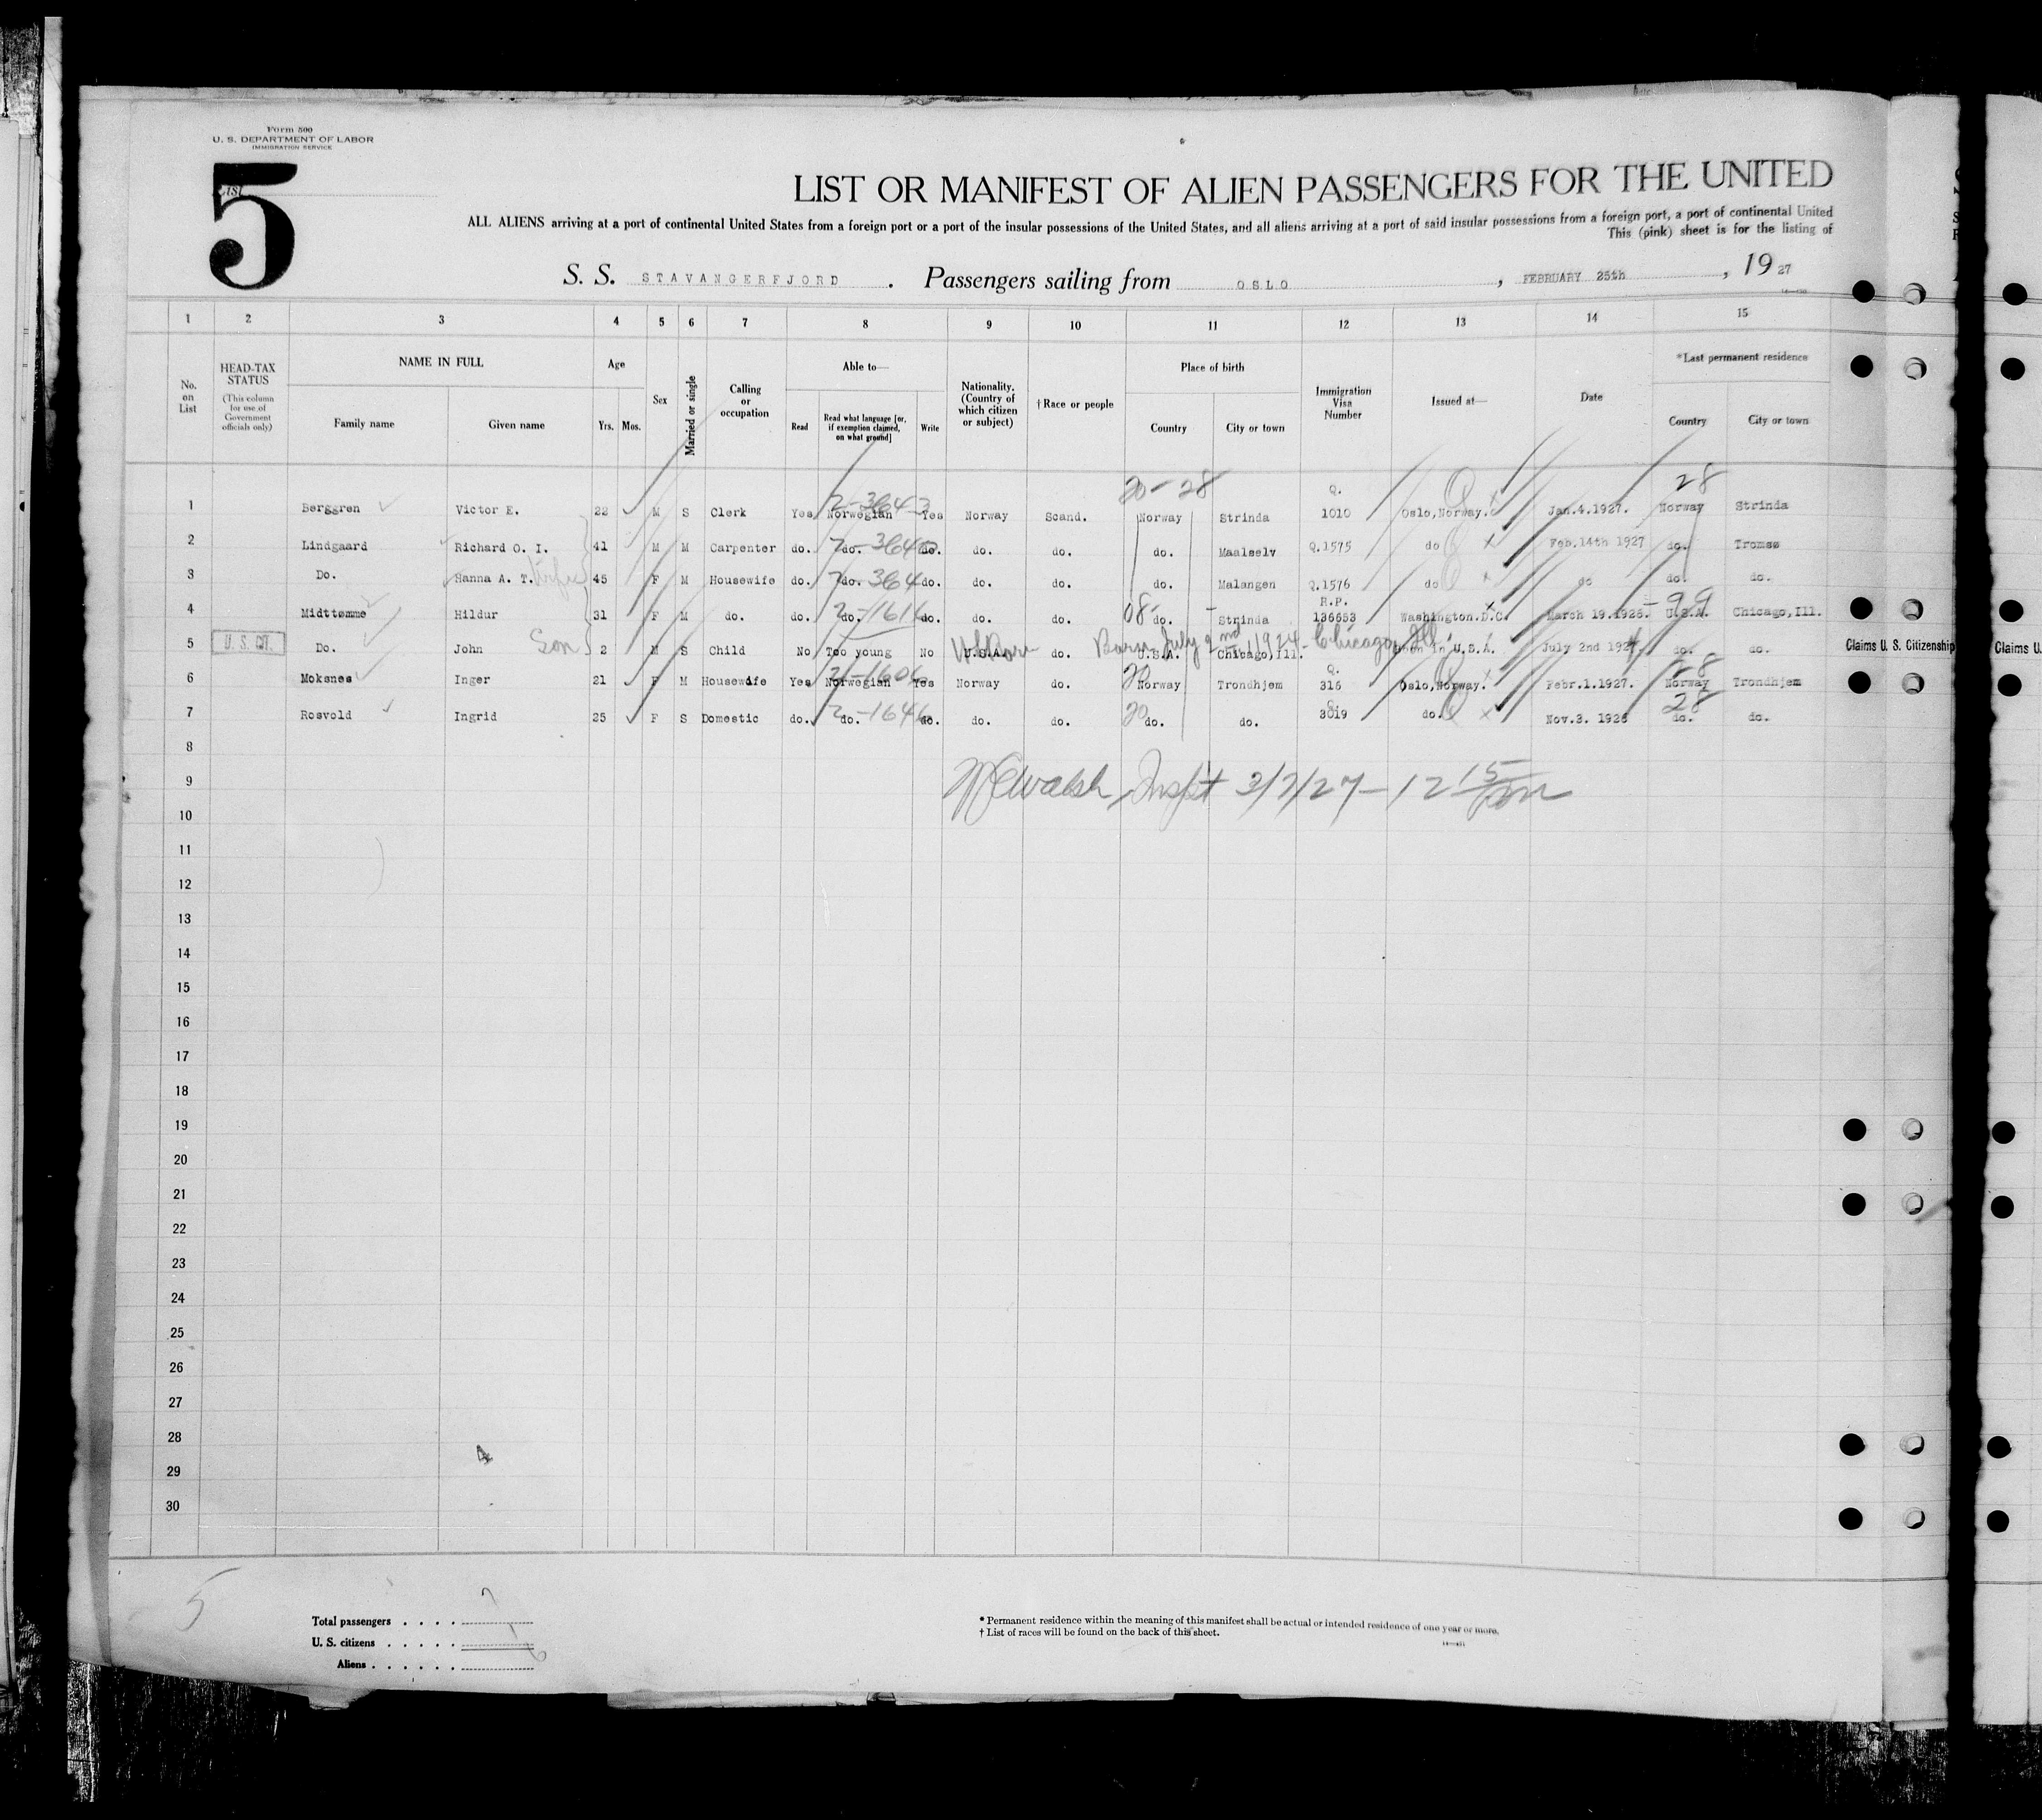 Form 500
U. S. DEPARTMENT OF LABOR
IMMIGRATION SERVICE
5
LIST OR MANIFEST OF ALIEN PASSENGERS FOR THE UNITED
ALL ALIENS arriving at a port of continental United States from a foreign port or a port of the insular possessions of the United States, and all aliens arriving at a port of said insular possessions from a foreign port, a port of continental United
This (pink) sheet is for the listing of
S. S. STAVANGERFJORD. Passengers sailing from OSLO, FEBRUARY 25th, 1927
1 2 3 4 5 6 7 8 9 10 11 12 13 14 15
No. on List
HEAD-TAX STATUS (This column for use of Government officials only)
NAME IN FULL
Family name Given name
Age
Yrs. Mos.
Sex
Married or single
Calling or occupation
Able to—
Read
Read what language [or, if exemption claimed, on what ground]
Write
Nationality. (Country of which citizen or subject)
†Race or people
Place of birth
Country City or town
Immigration Visa Number
Issued at—
Date
*Last permanent residence
Country City or town
20-28 28
1 Berggren Victor E. 22 M S Clerk Yes Norwegian 2-3643 Yes Norway Scand. Norway Strinda Q. 1010 Oslo,Norway. Jan.4.1927. Norway Strinda
2 Lindgaard Richard O. I. 41 M M Carpenter do. do. do. do. do. do. Maalselv Q.1575 do Feb.14th 1927 do. Tromsø
3 Do. Hanna A. T. Wife 45 F M Housewife do. do. 364 do. do. do. do. Malangen Q.1576 do do do. do.
4 Midttømme Hildur 31 F M do. do. do. 2-1616 do. do. do. 08- do. Strinda R.P. 136653 Washington.D.C. March 19.1926. -99 U.S.A. Chicago,Ill.
5 U. S. CIT. Do. John Son 2 M S Child No Too young No U.S.A. do. U.S.A. Chicago,Ill. Born July 2nd 1924 - Chicago, Ill. Born in U.S.A. July 2nd 1924 do. do. Claims U. S. Citizenship Claims U.
6 Moksnes Inger 21 F M Housewife Yes Norwegian 2-1606 Yes Norway do. 20 Norway Trondhjem Q. 316 Oslo,Norway. Febr.1.1927. 28 Norway Trondhjem
7 Rosvold Ingrid 25 F S Domestic do. do. 2-1646 do. do. do. 20 do. do. Q. 3019 do. Nov.3. 1926 28 do. do.
8
9 Walsh, Insp't 3/7/27 - 12 15
10
11
12
13
14
15
16
17
18
19
20
21
22
23
24
25
26
27
28
4
29
30
5
Total passengers . . . . 7
U. S. citizens . . . . . 1
Aliens . . . . . . 6
* Permanent residence within the meaning of this manifest shall be actual or intended residence of one year or more.
† List of races will be found on the back of this sheet.